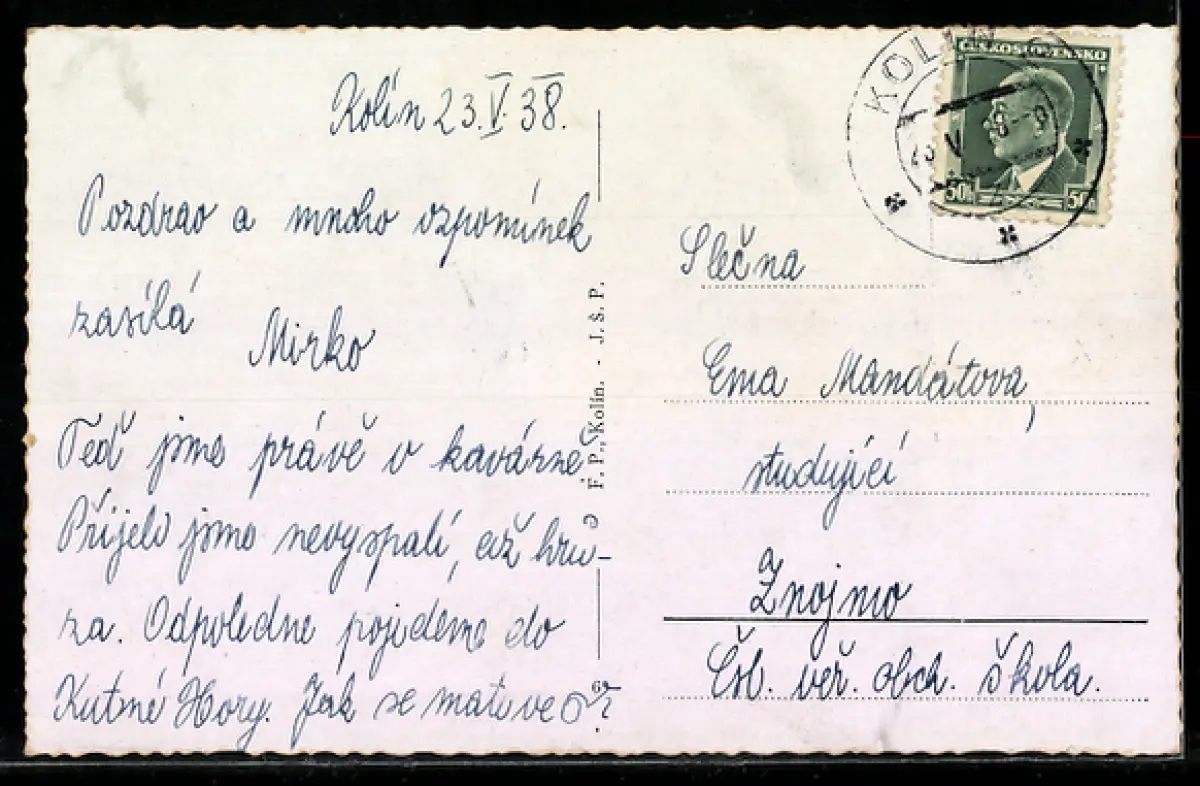 Kolín 23.V.38.
Pozdrav a mnoho vzpomínek
zasílá
Mirko
Teď jsme právě v kavárně
Přijeli jsme nevyspalí, až hrů-
za. Odpoledne pojedeme do
Kutné Hory. Jak se máte ve
F. P., Kolín. - J. Š. P.
KOLÍN
ČESKOSLOVENSKO
50h 50h
Slečna
Ema Mandátova,
studující
Znojmo
Čsl. veř. obch. škola.